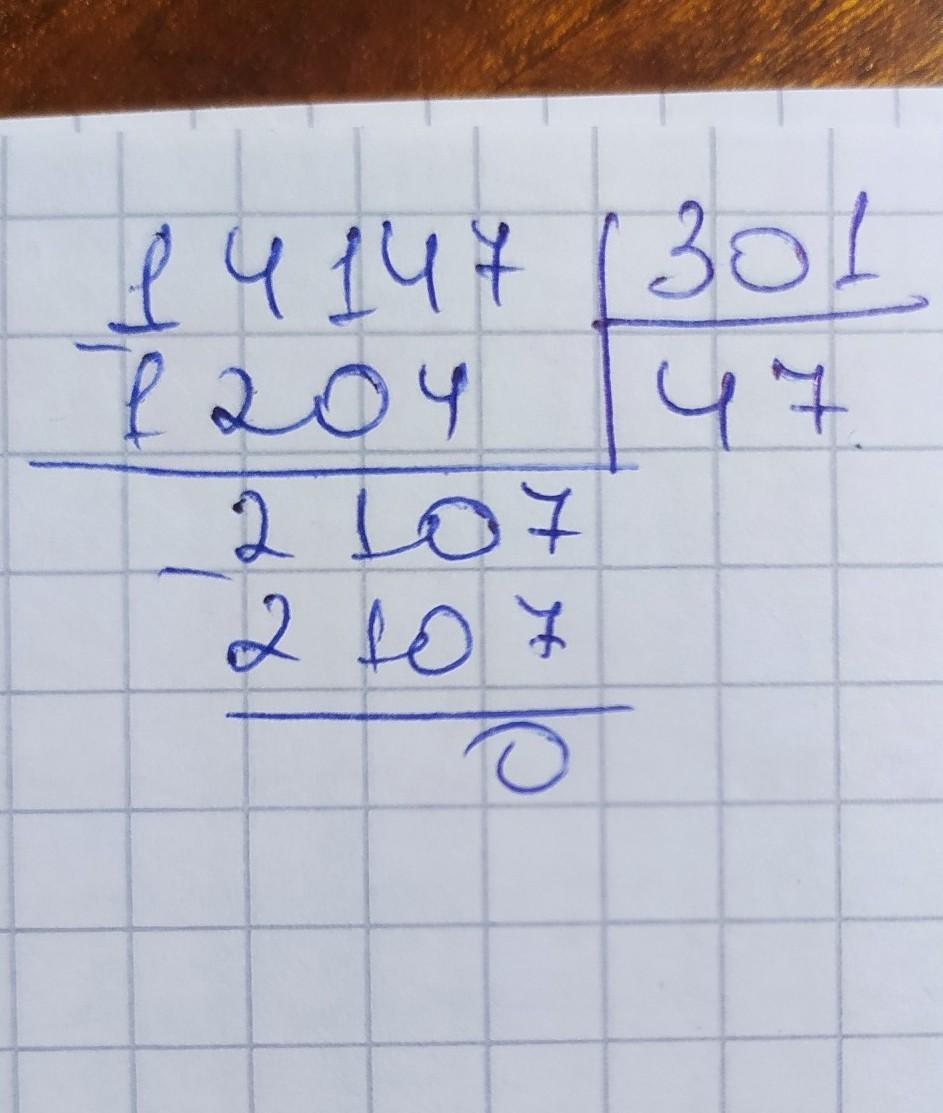 14147 301
- 1204 47
2107
- 2107
0